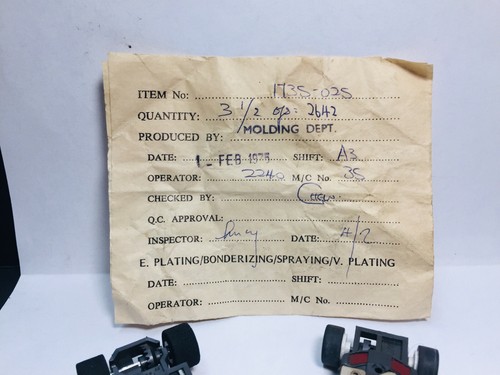 ITEM No: 1735-025
QUANTITY: 3 1/2 2642
PRODUCED BY: MOLDING DEPT.
DATE: 1 - FEB 1975 SHIFT: A3
OPERATOR: 2240 M/C No. 35
CHECKED BY:
Q.C. APPROVAL:
INSPECTOR: DATE: 4/2
E. PLATING/BONDERIZING/SPRAYING/V. PLATING
DATE: SHIFT:
OPERATOR: M/C No.